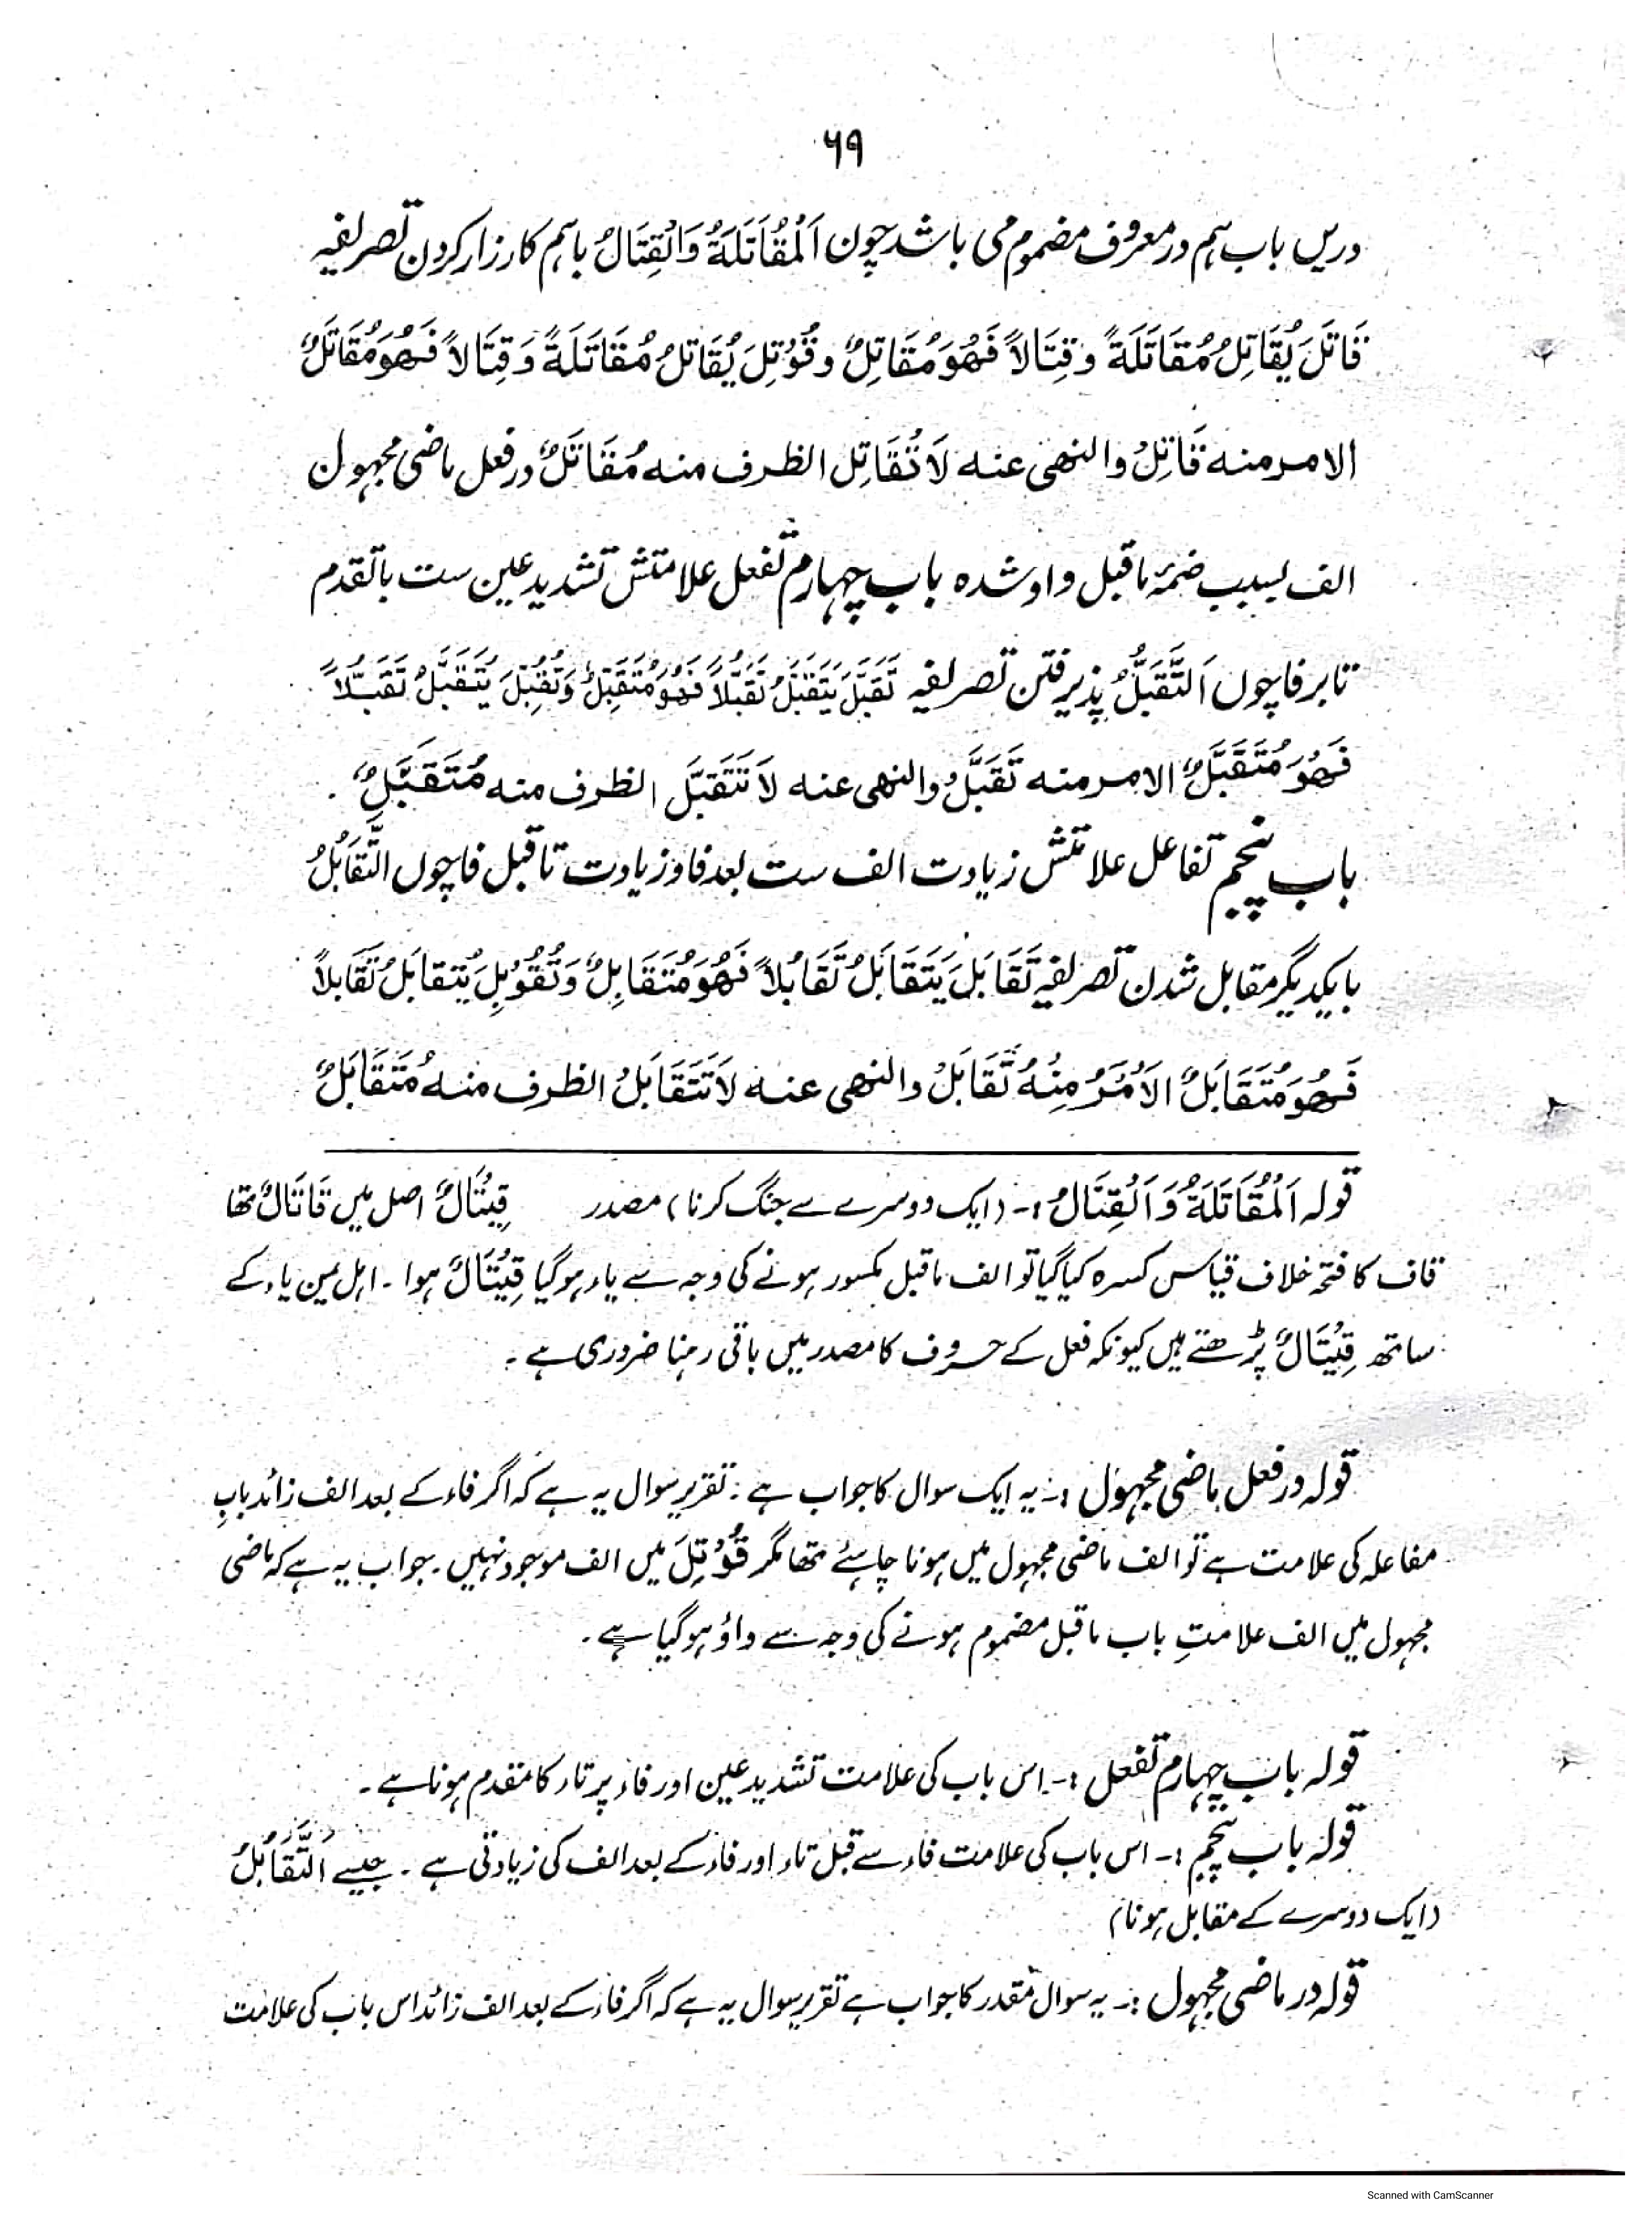 ۶۹
دریں باب ہم در معروف مضموم می باشد چون اَلْمُقَاتَلَةُ وَالْقِتَالُ باہم کارزار کردن تصریفہ
قَاتَلَ يُقَاتِلُ مُقَاتَلَةً وَقِتَالاً فَهُوَ مُقَاتِلٌ وقُوْتِلَ يُقَاتَلُ مُقَاتَلَةً وَقِتَالاً فَهُوَ مُقَاتَلٌ
الامر منه قَاتِلْ والنهى عنه لَا تُقَاتِل الظرف منه مُقَاتَلٌ در فعل ماضی مجہول
الف بسبب ضمۂ ماقبل واو شده باب چہارم تفعل علامتش تشدید عین ست باتقدم
تا بر فا چوں اَلتَّقَبُّلُ پذیرفتن تصریفہ تَقَبَّلَ يَتَقَبَّلُ تَقَبُّلاً فَهُوَ مُتَقَبِّلٌ وَتُقُبِّلَ يُتَقَبَّلُ تَقَبُّلاً
فَهُوَ مُتَقَبَّلٌ الامر منه تَقَبَّلْ والنهى عنه لَا تَتَقَبَّل الظرف منه مُتَقَبَّلٌ.
باب پنجم تفاعل علامتش زیادت الف ست بعد فا و زیادت تا قبل فا چوں التَّقَابُلُ
بایکدیگر مقابل شدن تصریفہ تَقَابَلَ يَتَقَابَلُ تَقَابُلاً فَهُوَ مُتَقَابِلٌ وَتُقُوْبِلَ يُتَقابَلُ تَقَابلاً
فَهُوَ مُتَقَابَلٌ الاَمْرُ مِنْهُ تَقَابَلْ والنهى عنه لاَ تَتَقَابَلْ الظرف منه مُتَقَابَلٌ
قولہ اَلْمُقَاتَلَةُ وَالْقِتَالُ :- (ایک دوسرے سے جنگ کرنا) مصدر قِيْتَالٌ اصل میں قَاتَالٌ تھا
قاف کا فتحہ خلاف قیاس کسرہ کیا گیا تو الف ماقبل مکسور ہونے کی وجہ سے یاء ہو گیا قِيْتَالٌ ہوا ۔ اہل یمن یاء کے
ساتھ قِيْتَالٌ پڑھتے ہیں کیونکہ فعل کے حروف کا مصدر میں باقی رہنا ضروری ہے ۔
قولہ در فعل ماضی مجہول :- یہ ایک سوال کا جواب ہے : تقریر سوال یہ ہے کہ اگر فاء کے بعد الف زائد بابِ
مفاعلہ کی علامت ہے تو الف ماضی مجہول میں ہونا چاہئے تھا مگر قُوْتِلَ میں الف موجود نہیں ۔ جواب یہ ہے کہ ماضی
مجہول میں الف علامتِ باب ماقبل مضموم ہونے کی وجہ سے واؤ ہو گیا ہے ۔
قولہ باب چہارم تفعل :- اس باب کی علامت تشدید عین اور فاء پر تاء کا مقدم ہونا ہے ۔
قولہ باب پنجم :- اس باب کی علامت فاء سے قبل تاء اور فاء کے بعد الف کی زیادتی ہے ۔ جیسے اَلتَّقَابُلُ
(ایک دوسرے کے مقابل ہونا)
قولہ در ماضی مجہول :- یہ سوال مُقدر کا جواب ہے تقریر سوال یہ ہے کہ اگر فاء کے بعد الف زائد اس باب کی علامت
Scanned with CamScanner